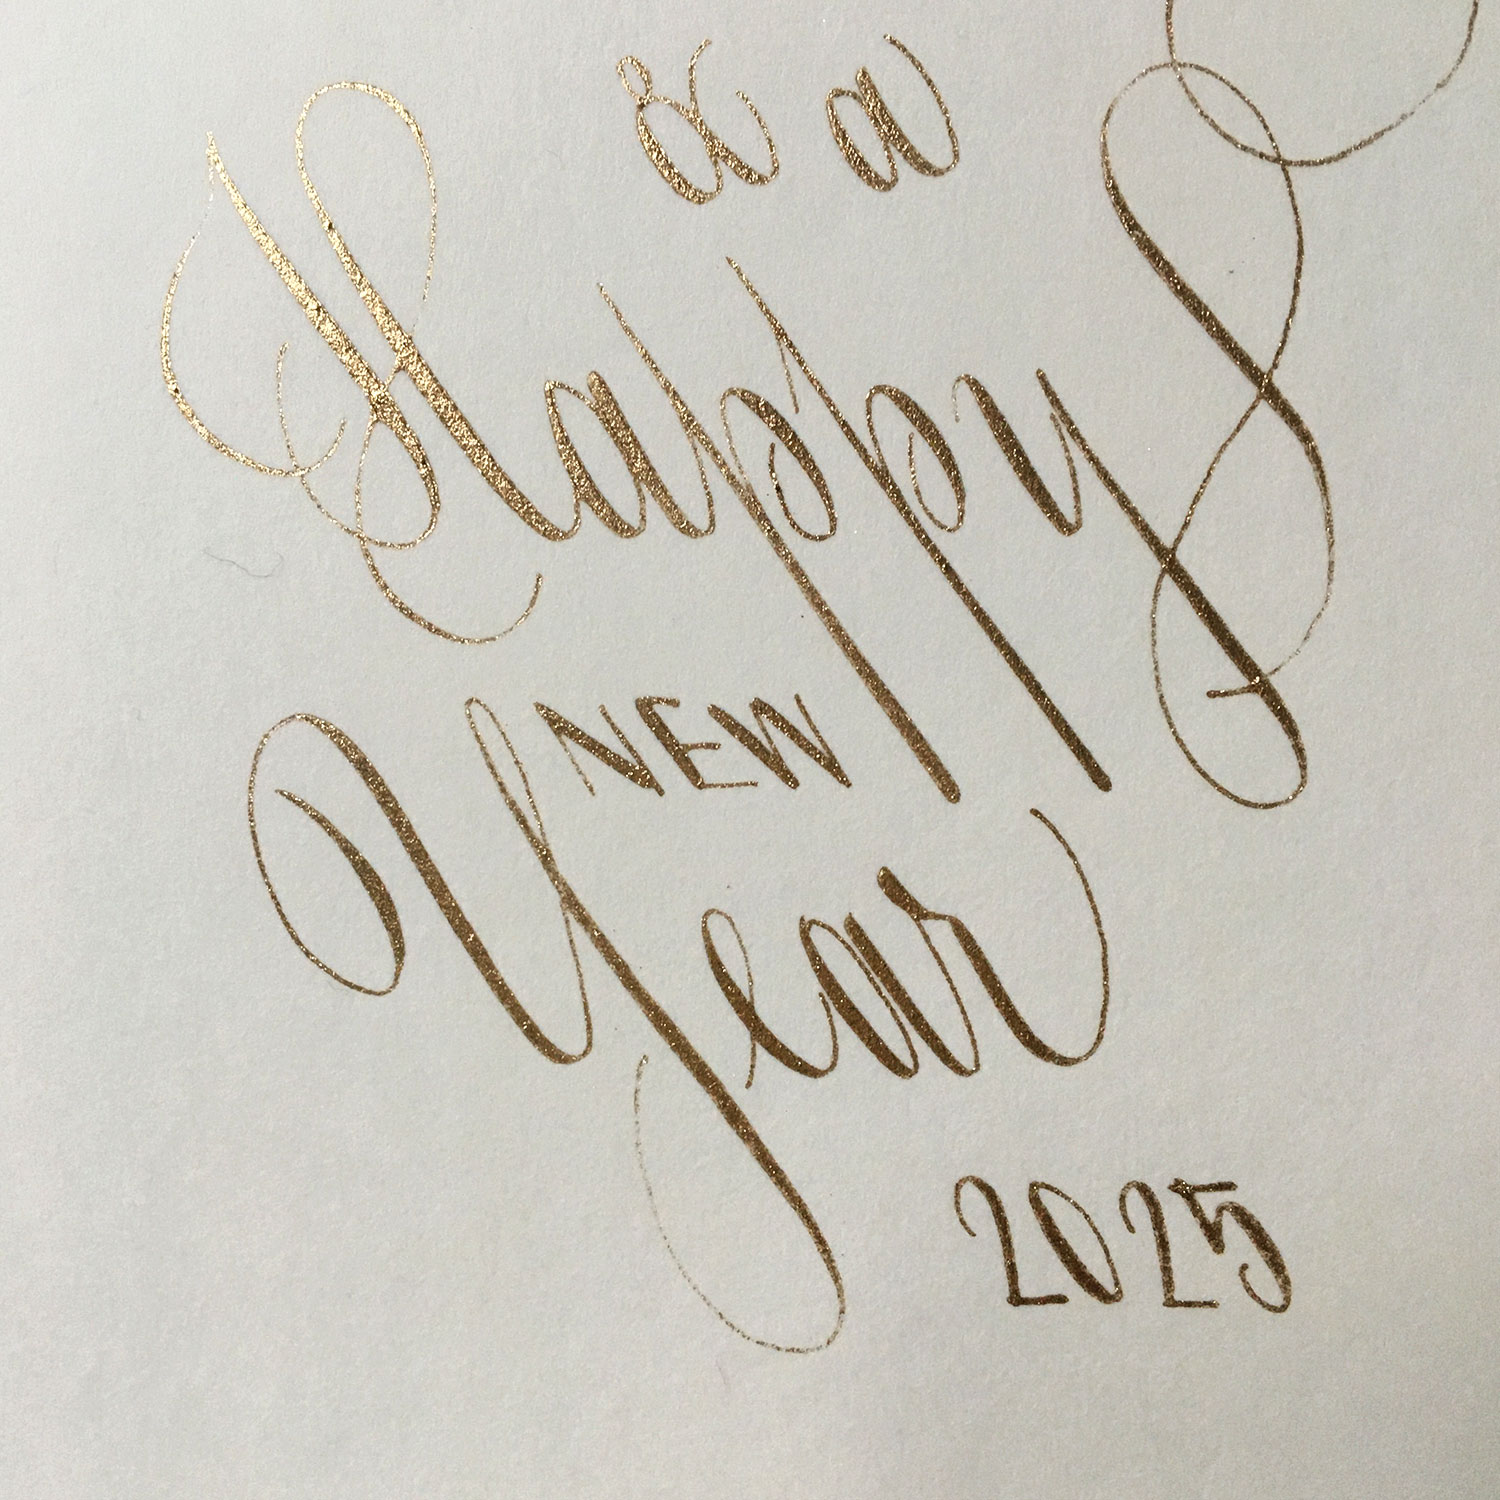 & a
Happy
NEW
Year
2025